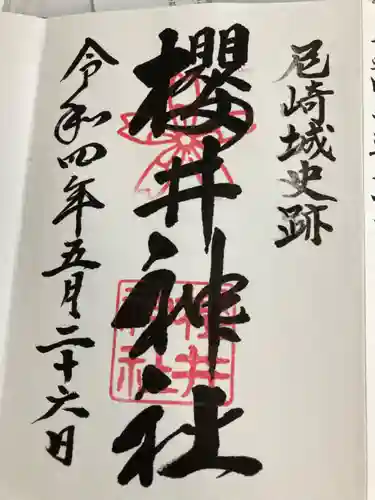 尼崎城史跡
櫻井神社
令和四年五月二十六日
櫻井神社